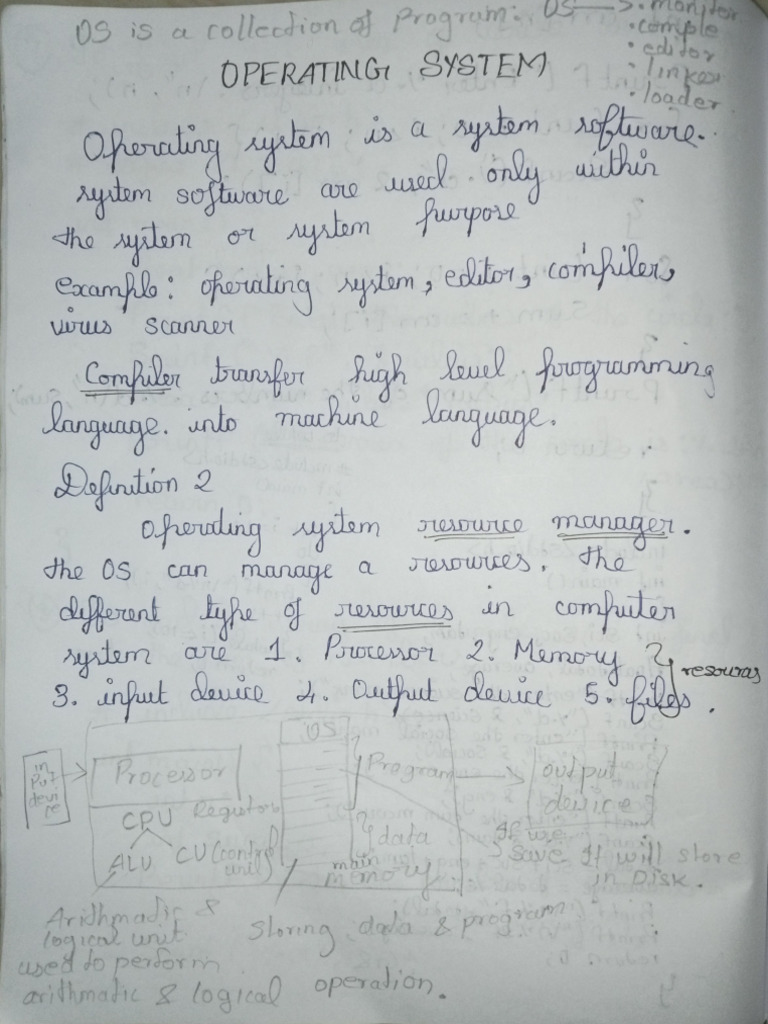 OS is a collection of Program. OS → . monitor
. comple
. editor
. linker
. loader
OPERATING SYSTEM
Operating system is a system software.
system software are used only within
the system or system purpose
example: operating system, editor, compiler,
virus scanner
Compiler transfer high level programming
language. into machine language.
Definition 2
Operating system resource manager.
the OS can manage a resources. The
different type of resources in computer
system are 1. Processor 2. Memory
3. input device 4. Output device 5. files.
resouras
OS
in
put
devi
ce
Processor
Program
output
device
CPU Registor
data
If we
save It will store
in Disk.
ALU CU (control
unit)
main
memory
Arithmadic &
logical unit
used to perform
arithmatic & logical operation.
Storing data & program